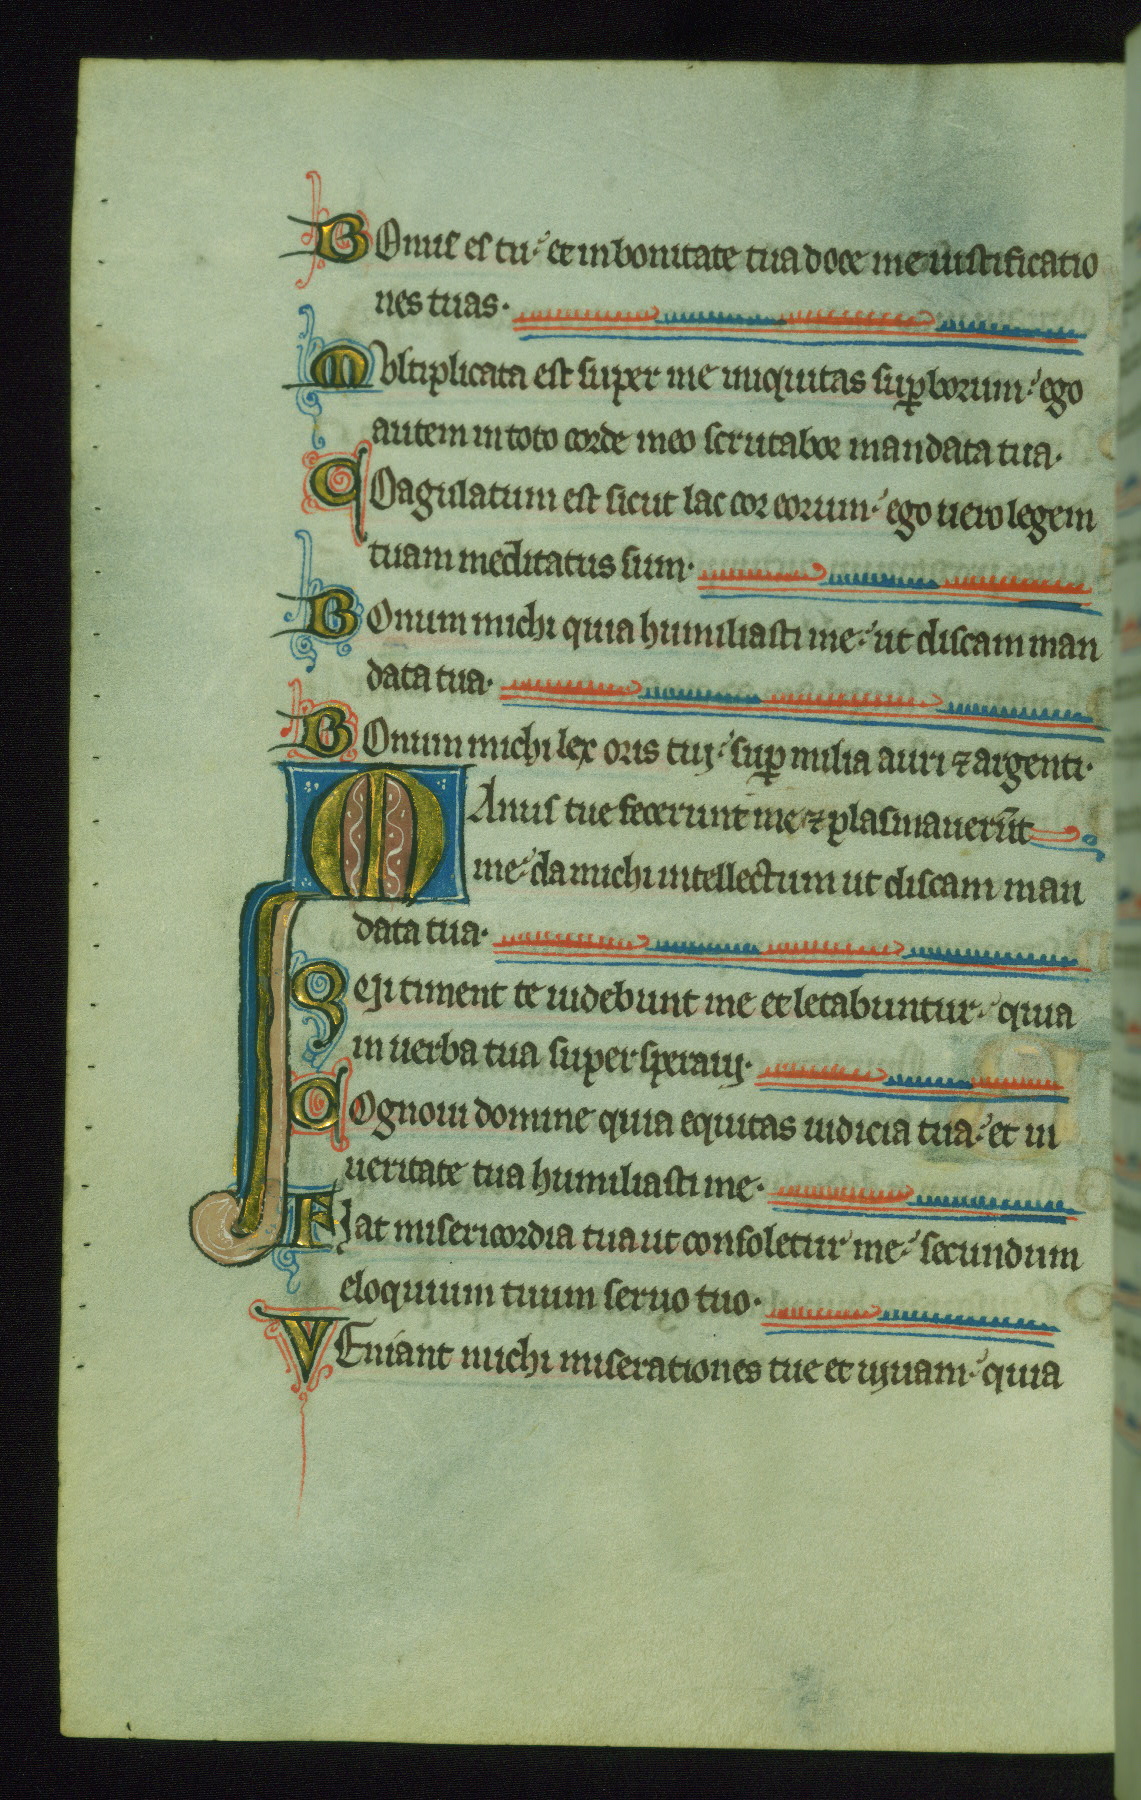 BOnus es tu· et in bonitate tua doce me iustificatio
nes tuas·
Multiplicata est super me iniquitas sup̲borum· ego
autem in toto corde meo scrutabor mandata tua·
COagulatum est sicut lac cor eorum· ego uero legem
tuam meditatus sum·
BOnum michi quia humiliasti me· ut discam man
data tua·
BOnum michi lex oris tuj· sup̲ milia auri ⁊ argenti·
MAnus tue fecerunt me ⁊ plasmauerūt
me· da michi intellectum ut discam man
data tua·
Qej timent te uidebunt me et letabuntur· quia
in uerba tua super speraui·
COgnoui domine quia equitas iudicia tua· et in
ueritate tua humiliasti me·
Fjat misericordia tua ut consoletur me· secundum
eloquium tuum seruo tuo·
VEniant michi miserationes tue et uiuam· quia